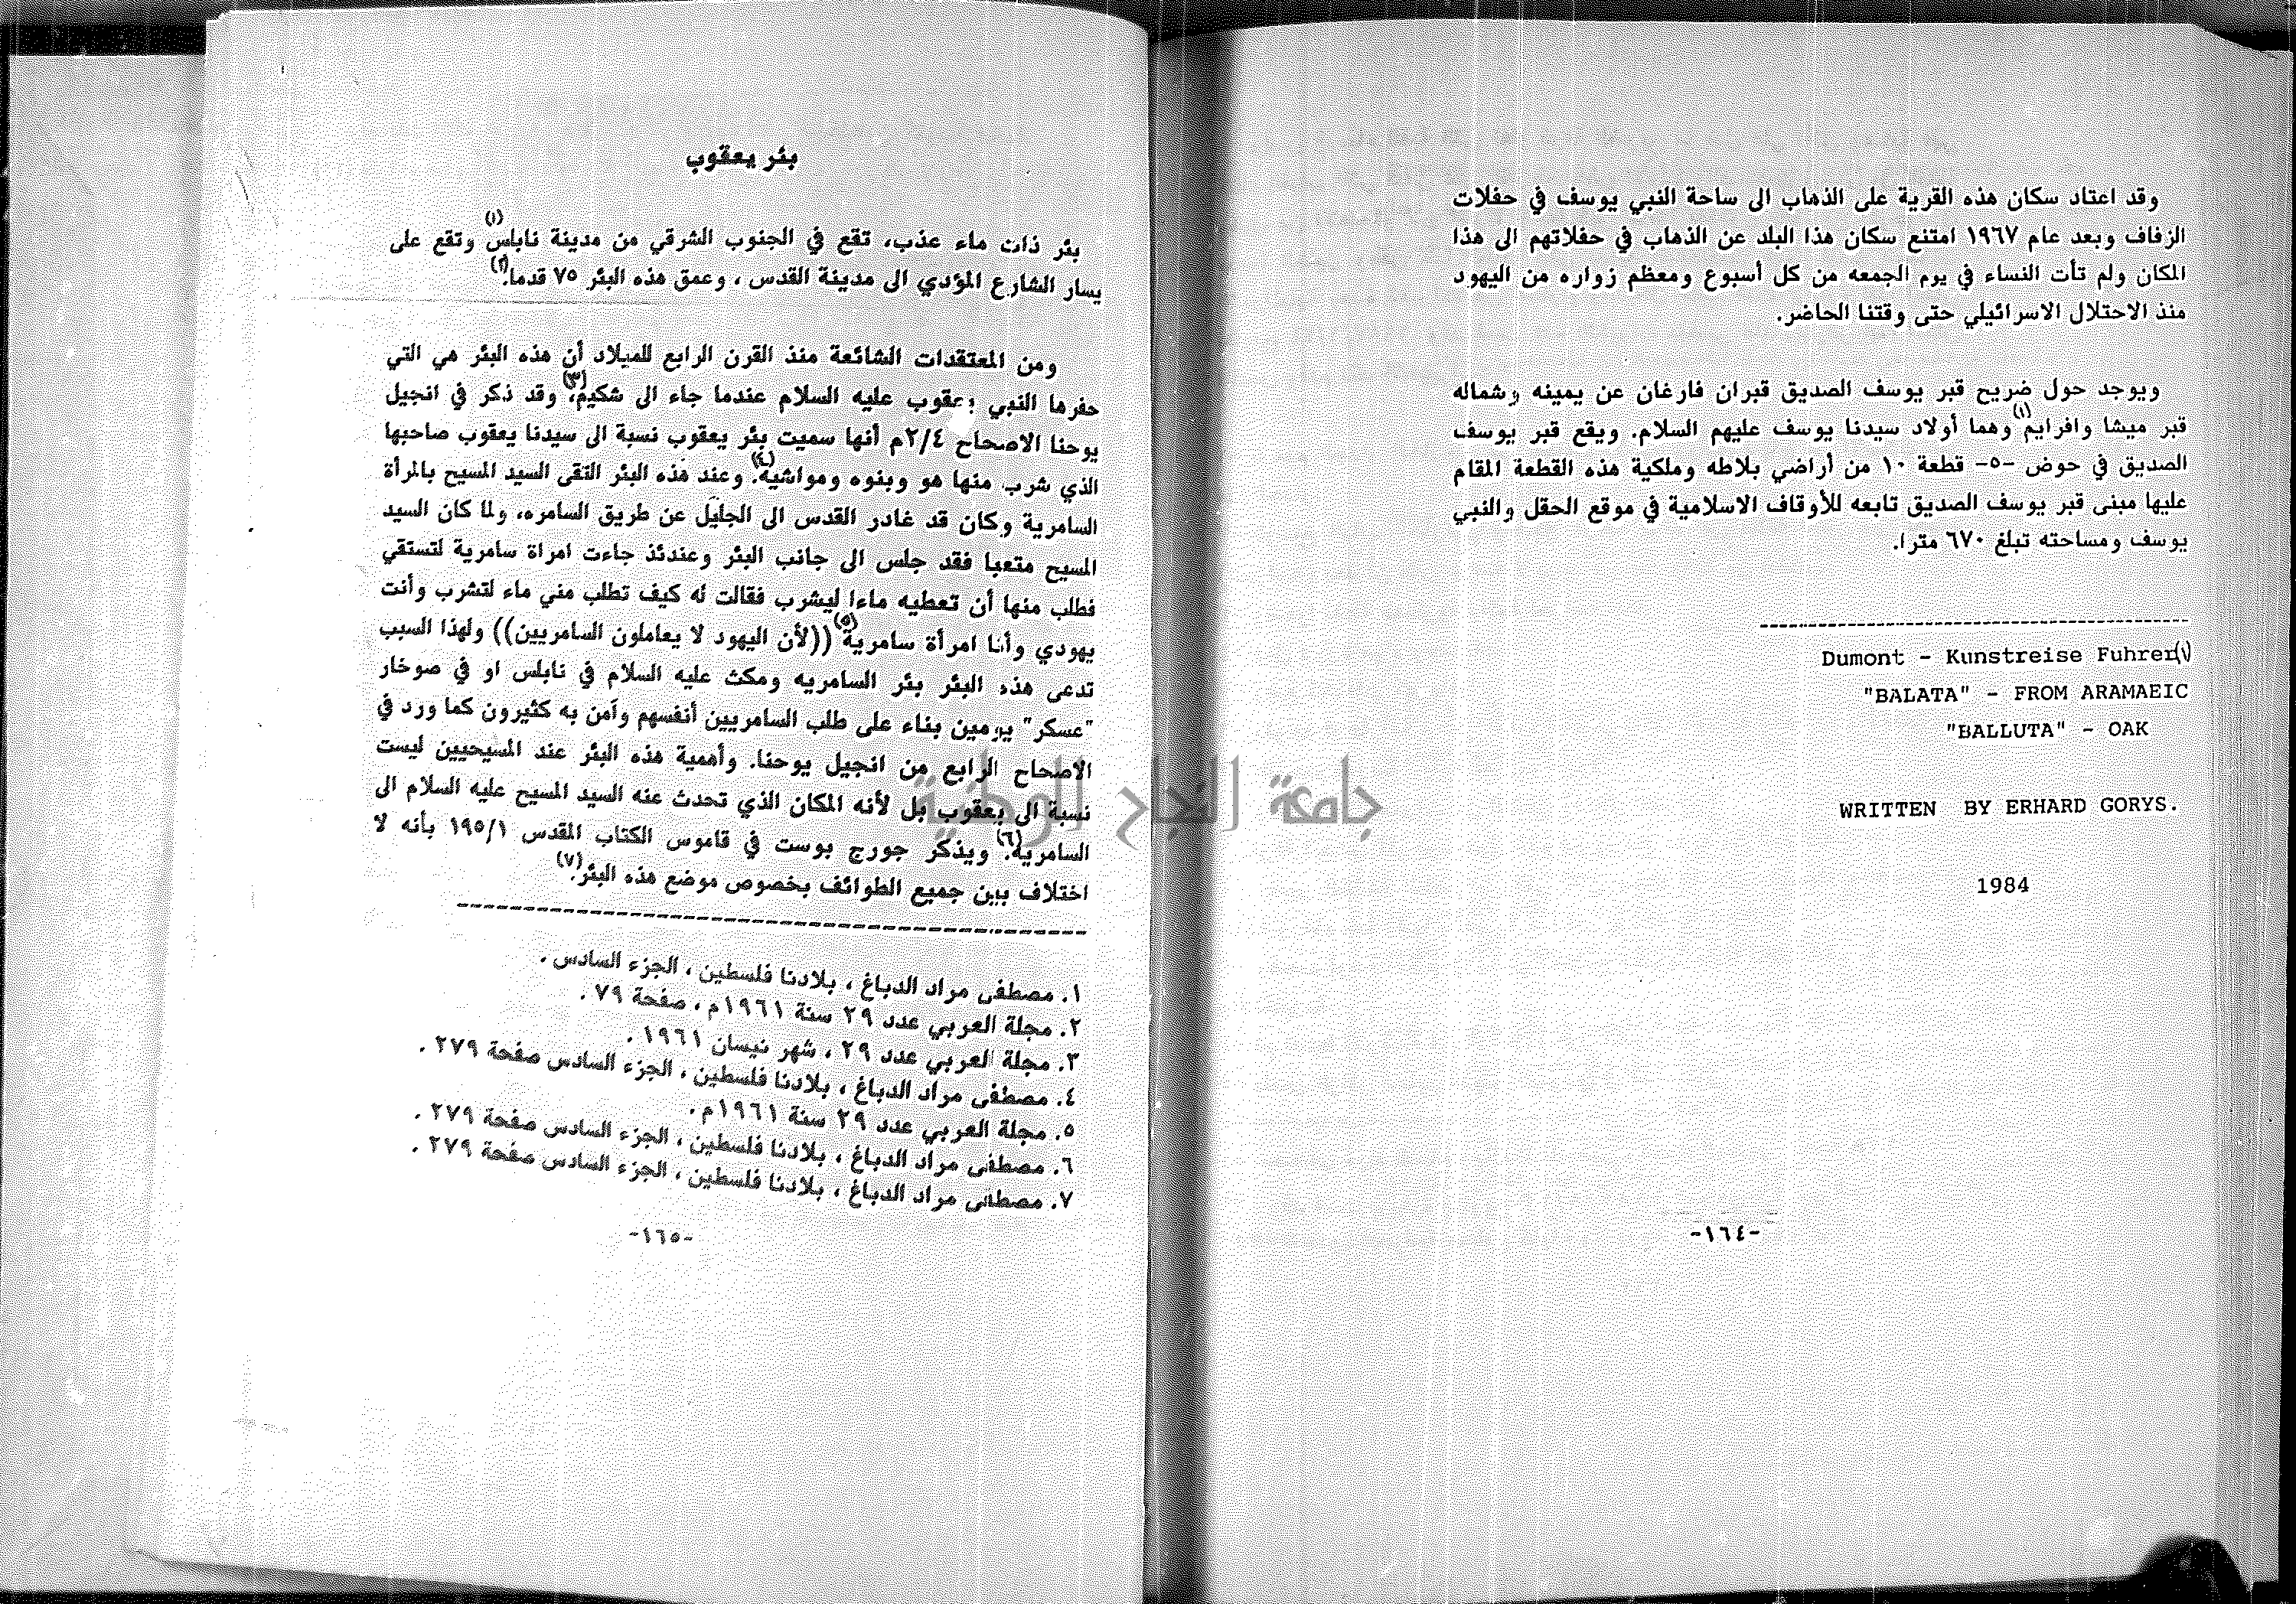 وقد اعتاد سكان هذه القرية على الذهاب الى ساحة النبي يوسف في حفلات
الزفاف وبعد عام ١٩٦٧ امتنع سكان هذا البلد عن الذهاب في حفلاتهم الى هذا
المكان ولم تأت النساء في يوم الجمعه من كل أسبوع ومعظم زواره من اليهود
منذ الاحتلال الاسرائيلي حتى وقتنا الحاضر.
ويوجد حول ضريح قبر يوسف الصديق قبران فارغان عن يمينه وشماله
قبر ميشا وافرايم(١) وهما أولاد سيدنا يوسف عليهم السلام. ويقع قبر يوسف
الصديق في حوض -٥- قطعة ١٠ من أراضي بلاطه وملكية هذه القطعة المقام
عليها مبنى قبر يوسف الصديق تابعه للأوقاف الاسلامية في موقع الحقل والنبي
يوسف ومساحته تبلغ ٦٧٠ مترا.
Dumont - Kunstreise Fuhrer(١)
"BALATA" - FROM ARAMAEIC
"BALLUTA" - OAK
WRITTEN BY ERHARD GORYS.
1984
-١٦٤-
بئر يعقوب
بئر ذات ماء عذب، تقع في الجنوب الشرقي من مدينة نابلس(١) وتقع على
يسار الشارع المؤدي الى مدينة القدس ، وعمق هذه البئر ٧٥ قدما.(٢)
ومن المعتقدات الشائعة منذ القرن الرابع للميلاد أن هذه البئر هي التي
حفرها النبي يعقوب عليه السلام عندما جاء الى شكيم(٣)، وقد ذكر في انجيل
يوحنا الاصحاح ٢/٤م أنها سميت بئر يعقوب نسبة الى سيدنا يعقوب صاحبها
الذي شرب منها هو وبنوه ومواشيه(٤). وعند هذه البئر التقى السيد المسيح بالمرأة
السامرية وكان قد غادر القدس الى الجليل عن طريق السامره، ولما كان السيد
المسيح متعبا فقد جلس الى جانب البئر وعندئذ جاءت امراة سامرية لتستقي
فطلب منها أن تعطيه ماءا ليشرب فقالت له كيف تطلب مني ماء لتشرب وأنت
يهودي وأنا امرأة سامرية(٥) ((لأن اليهود لا يعاملون السامريين)) ولهذا السبب
تدعى هذه البئر بئر السامريه ومكث عليه السلام في نابلس او في صوخار
"عسكر" يومين بناء على طلب السامريين أنفسهم وآمن به كثيرون كما ورد في
الاصحاح الرابع من انجيل يوحنا. وأهمية هذه البئر عند المسيحيين ليست
نسبة الى يعقوب بل لأنه المكان الذي تحدث عنه السيد المسيح عليه السلام الى
السامرية(٦). ويذكر جورج بوست في قاموس الكتاب المقدس ١٩٥/١ بأنه لا
اختلاف بين جميع الطوائف بخصوص موضع هذه البئر.(٧)
١. مصطفى مراد الدباغ ، بلادنا فلسطين ، الجزء السادس .
٢. مجلة العربي عدد ٢٩ سنة ١٩٦١م ، صفحة ٧٩ .
٣. مجلة العربي عدد ٢٩ ، شهر نيسان ١٩٦١ .
٤. مصطفى مراد الدباغ ، بلادنا فلسطين ، الجزء السادس صفحة ٢٧٩ .
٥. مجلة العربي عدد ٢٩ سنة ١٩٦١م .
٦. مصطفى مراد الدباغ ، بلادنا فلسطين ، الجزء السادس صفحة ٢٧٩ .
٧. مصطفى مراد الدباغ ، بلادنا فلسطين ، الجزء السادس صفحة ٢٧٩ .
-١٦٥-
جامعة النجاح الوطنية